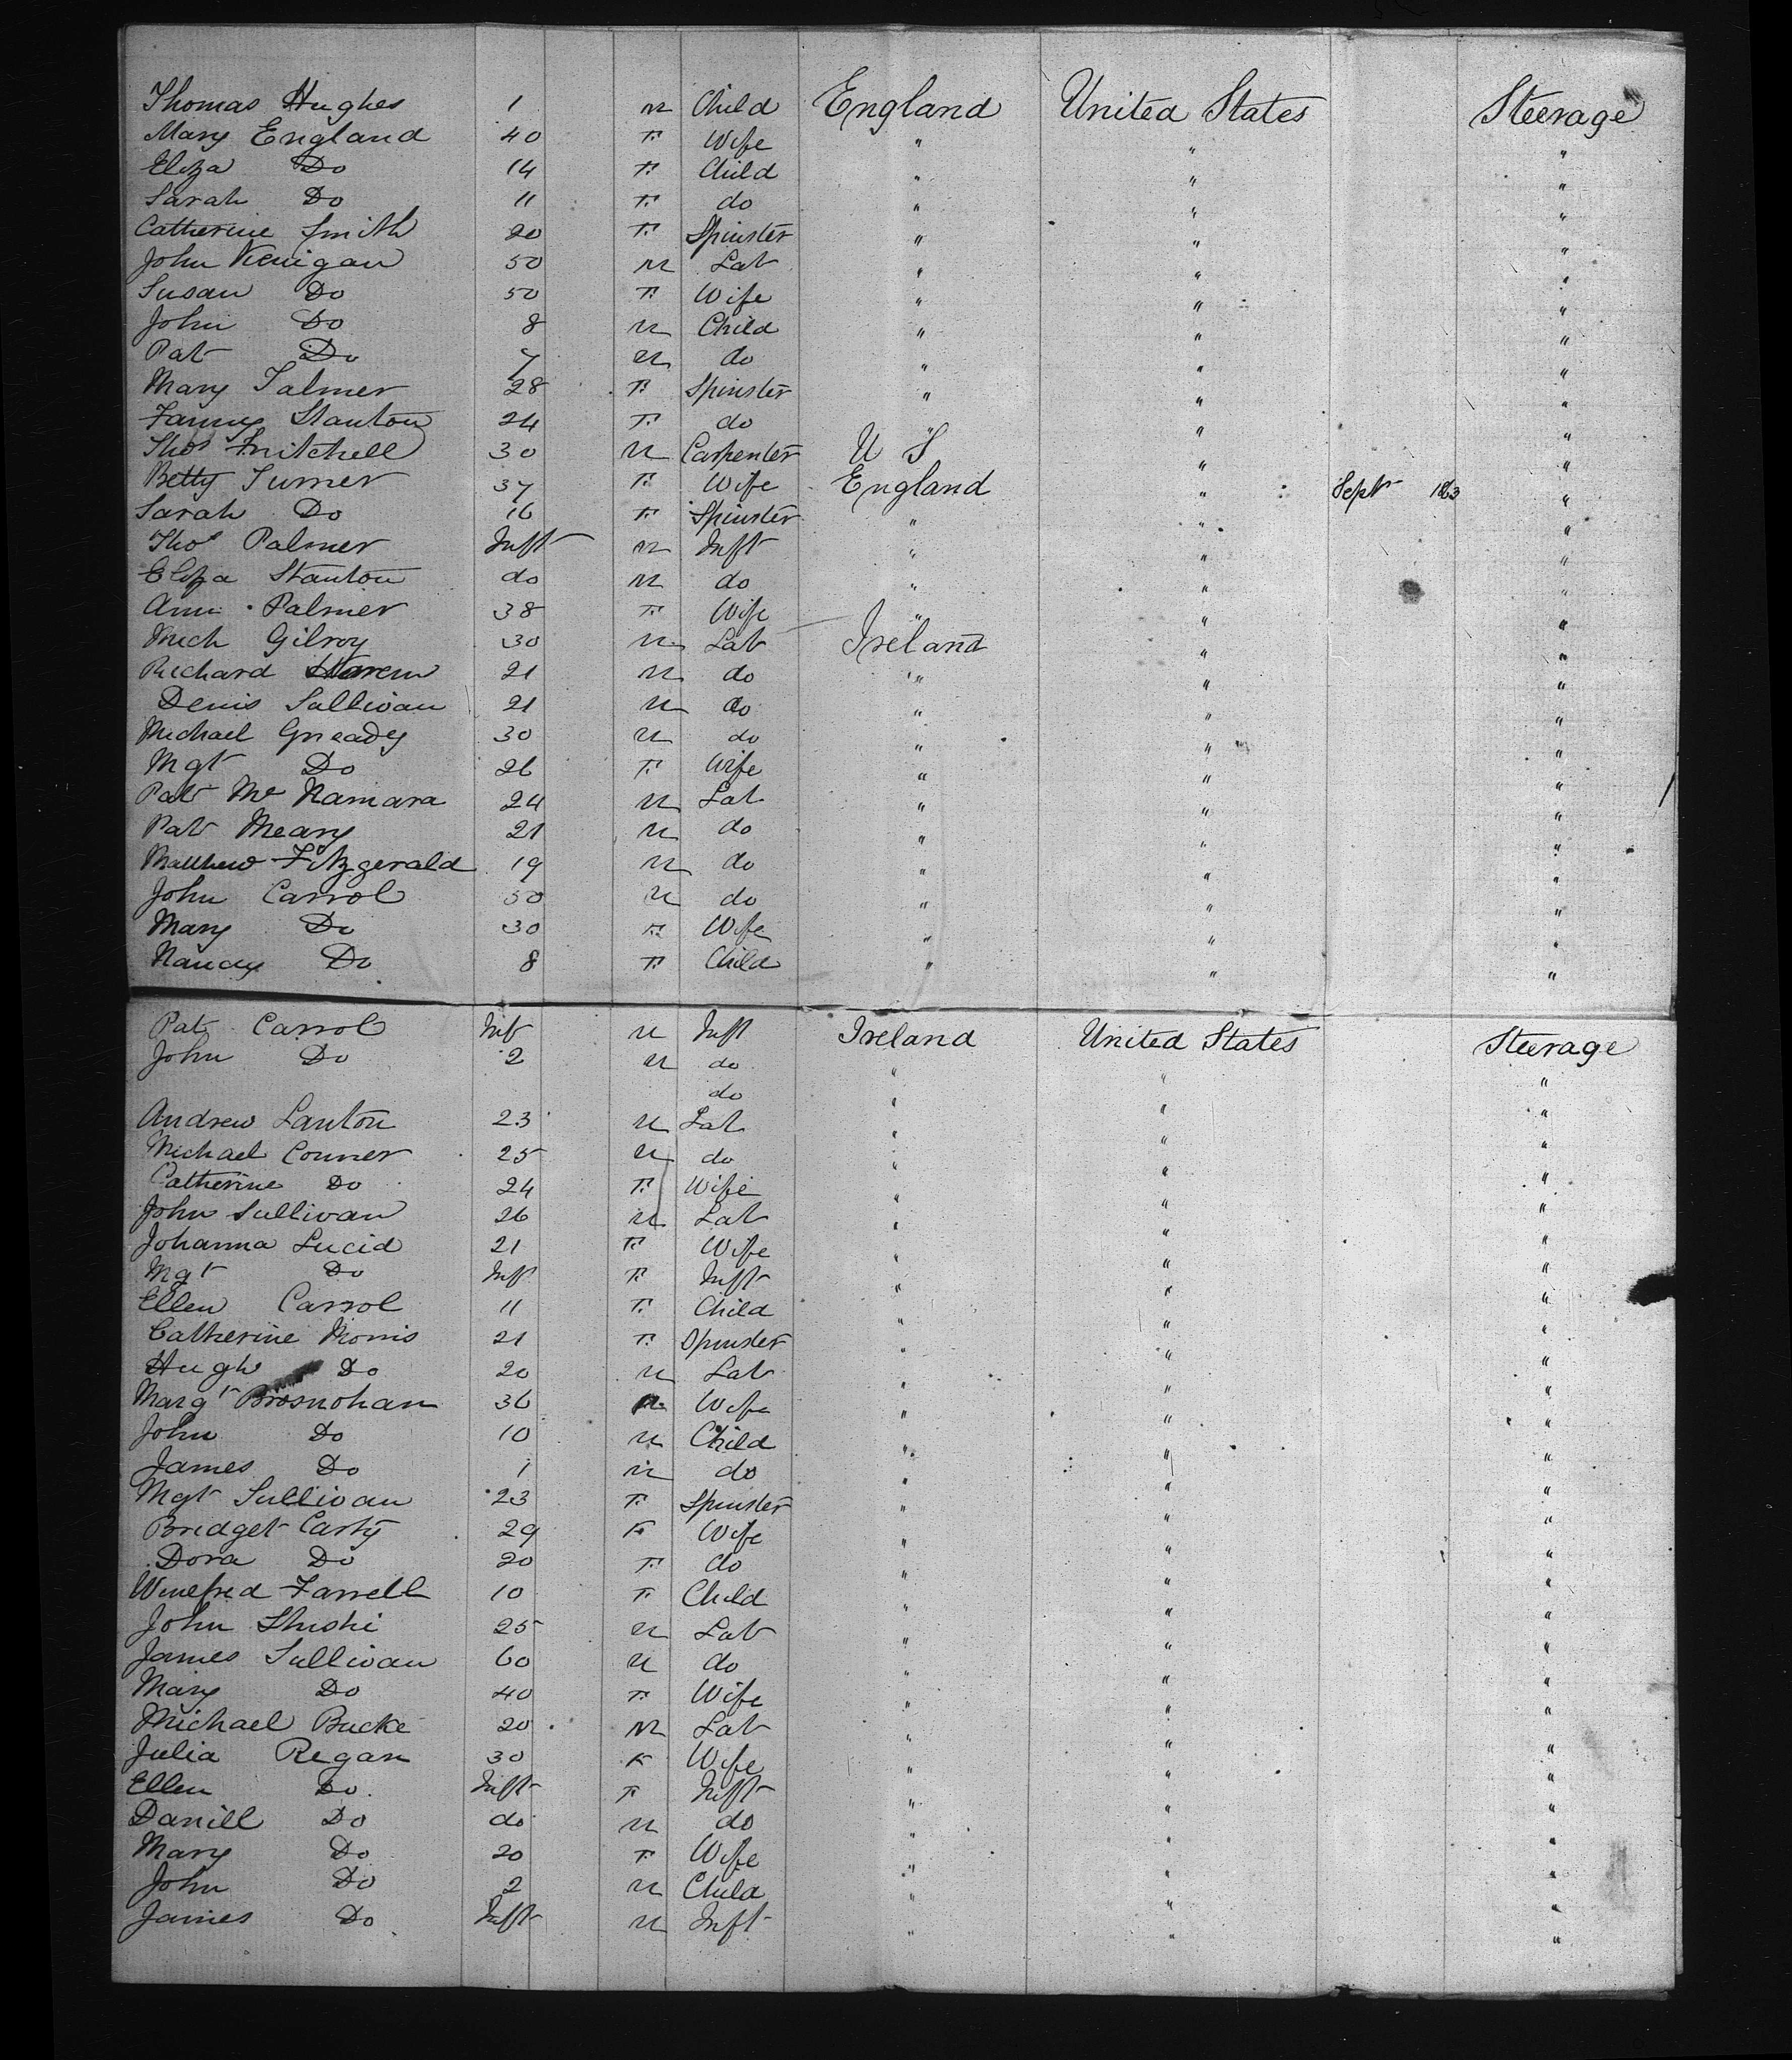 Thomas Hughes 1 M Child England United States Steerage
Mary England 40 F Wife " " "
Eliza Do 14 F Child " " "
Sarah Do 11 F do " " "
Catherine Smith 20 F Spinster " " "
John Kenigan 50 M Lab " " "
Susan Do 50 F Wife " " "
John Do 8 M Child " " "
Pat Do 7 M do " " "
Mary Palmer 28 F Spinster " " "
Fanny Stanton 24 F do " " "
Thos Mitchell 30 M Carpenter U S " "
Betty Turner 37 F Wife England " Sept 1863 "
Sarah Do 16 F Spinster " " "
Thos Palmer Inft M Inft " " "
Eliza Stanton do M do " " "
Ann Palmer 38 F Wife " " "
Mich Gilroy 30 M Lab Ireland " "
Richard 21 M do " " "
Denis Sullivan 21 M do " " "
Michael Gready 30 M do " " "
Mgt Do 26 F Wife " " "
Pat Mc Namara 24 M Lab " " "
Pat Meany 21 M do " " "
Matthew Fitzgerald 19 M do " " "
John Carrol 50 M do " " "
Mary Do 30 F Wife " " "
Nancy Do 8 F Child " " "
Pat Carrol Inft M Inft Ireland United States Steerage
John Do 2 M do " " "
do " " "
Andrew Lanton 23 M Lab " " "
Michael Conner 25 M do " " "
Catherine Do 24 F Wife " " "
John Sullivan 26 M Lab " " "
Johanna Lucid 21 F Wife " " "
Mgt Do Inft F Inft " " "
Ellen Carrol 11 F Child " " "
Catherine Morris 21 F Spinster " " "
Hugh Do 20 M Lab " " "
Margt Brosnohan 36 Wife " " "
John Do 10 M Child " " "
James Do 1 M do " " "
Mgt Sullivan 23 F Spinster " " "
Bridget Carty 29 F Wife " " "
Dora Do 20 F do " " "
Winefred Farrell 10 F Child " " "
John 25 M Lab " " "
James Sullivan 60 M do " " "
Mary Do 40 F Wife " " "
Michael Bucke 20 M Lab " " "
Julia Regan 30 F Wife " " "
Ellen Do Inft F Inft " " "
Daniell Do do M do " " "
Mary Do 20 F Wife " " "
John Do 2 M Child " " "
James Do Inft M Inft " " "